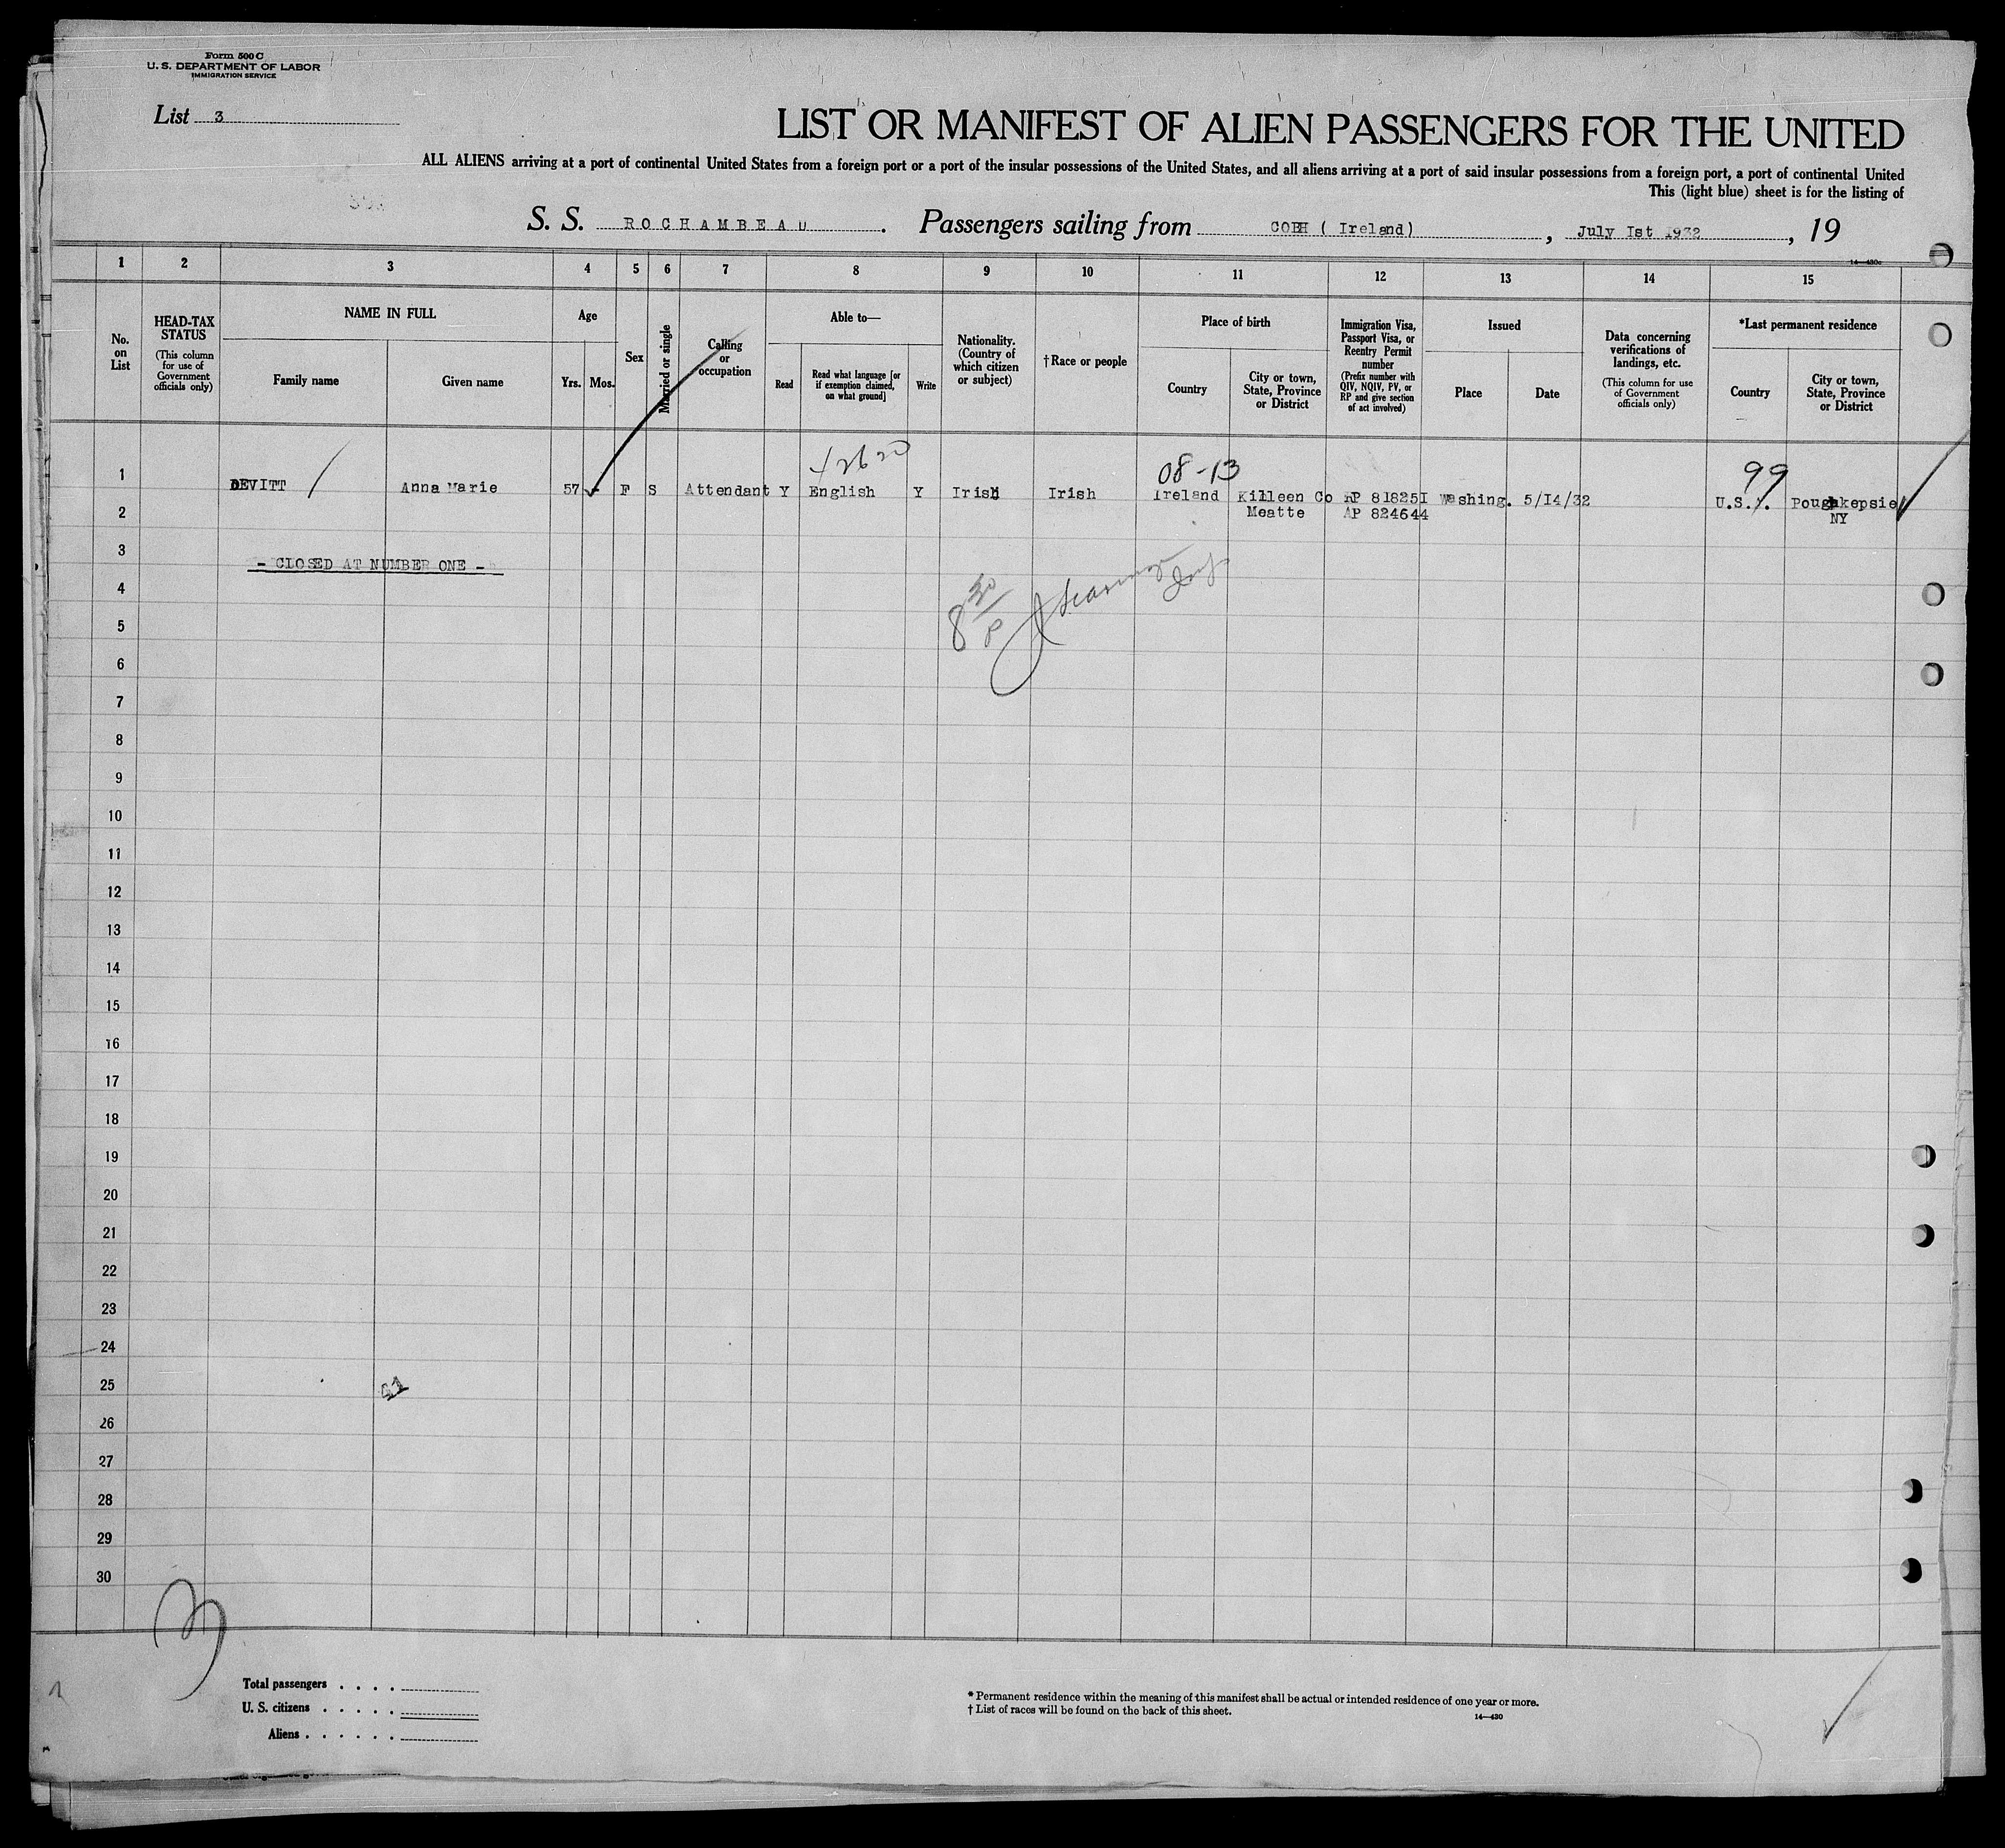 Form 500 C
U. S. DEPARTMENT OF LABOR
IMMIGRATION SERVICE
List 3
LIST OR MANIFEST OF ALIEN PASSENGERS FOR THE UNITED
ALL ALIENS arriving at a port of continental United States from a foreign port or a port of the insular possessions of the United States, and all aliens arriving at a port of said insular possessions from a foreign port, a port of continental United
This (light blue) sheet is for the listing of
S. S. ROCHAMBEAU. Passengers sailing from COBH ( Ireland), July Ist 1932, 19
14—430c
1 2 3 4 5 6 7 8 9 10 11 12 13 14 15
No. on List
HEAD-TAX STATUS
(This column for use of Government officials only)
NAME IN FULL
Family name
Given name
Age
Yrs. Mos.
Sex
Married or single
Calling or occupation
Able to—
Read
Read what language [or if exemption claimed, on what ground]
Write
Nationality. (Country of which citizen or subject)
† Race or people
Place of birth
Country
City or town, State, Province or District
Immigration Visa, Passport Visa, or Reentry Permit number
(Prefix number with QIV, NQIV, PV, or RP and give section of act involved)
Issued
Place
Date
Data concerning verifications of landings, etc.
(This column for use of Government officials only)
*Last permanent residence
Country
City or town, State, Province or District
42620
08-13
99
1 DEVITT Anna Marie 57 - F S Attendant Y English Y Irish Irish Ireland Killeen Co RP 81825I Washing. 5/I4/32 U.S. Poughkepsie
2 Meatte AP 824644 NY
3
- CLOSED AT NUMBER ONE -
4
8 30/P
5
6
7
8
9
10
11
12
13
14
15
16
17
18
19
20
21
22
23
24
25
26
27
28
29
30
3
Total passengers . . . .
U. S. citizens . . . . .
Aliens . . . . . .
* Permanent residence within the meaning of this manifest shall be actual or intended residence of one year or more.
† List of races will be found on the back of this sheet.
14—430